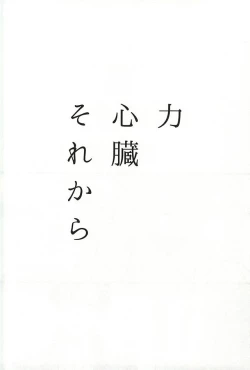 力
心臓
それから